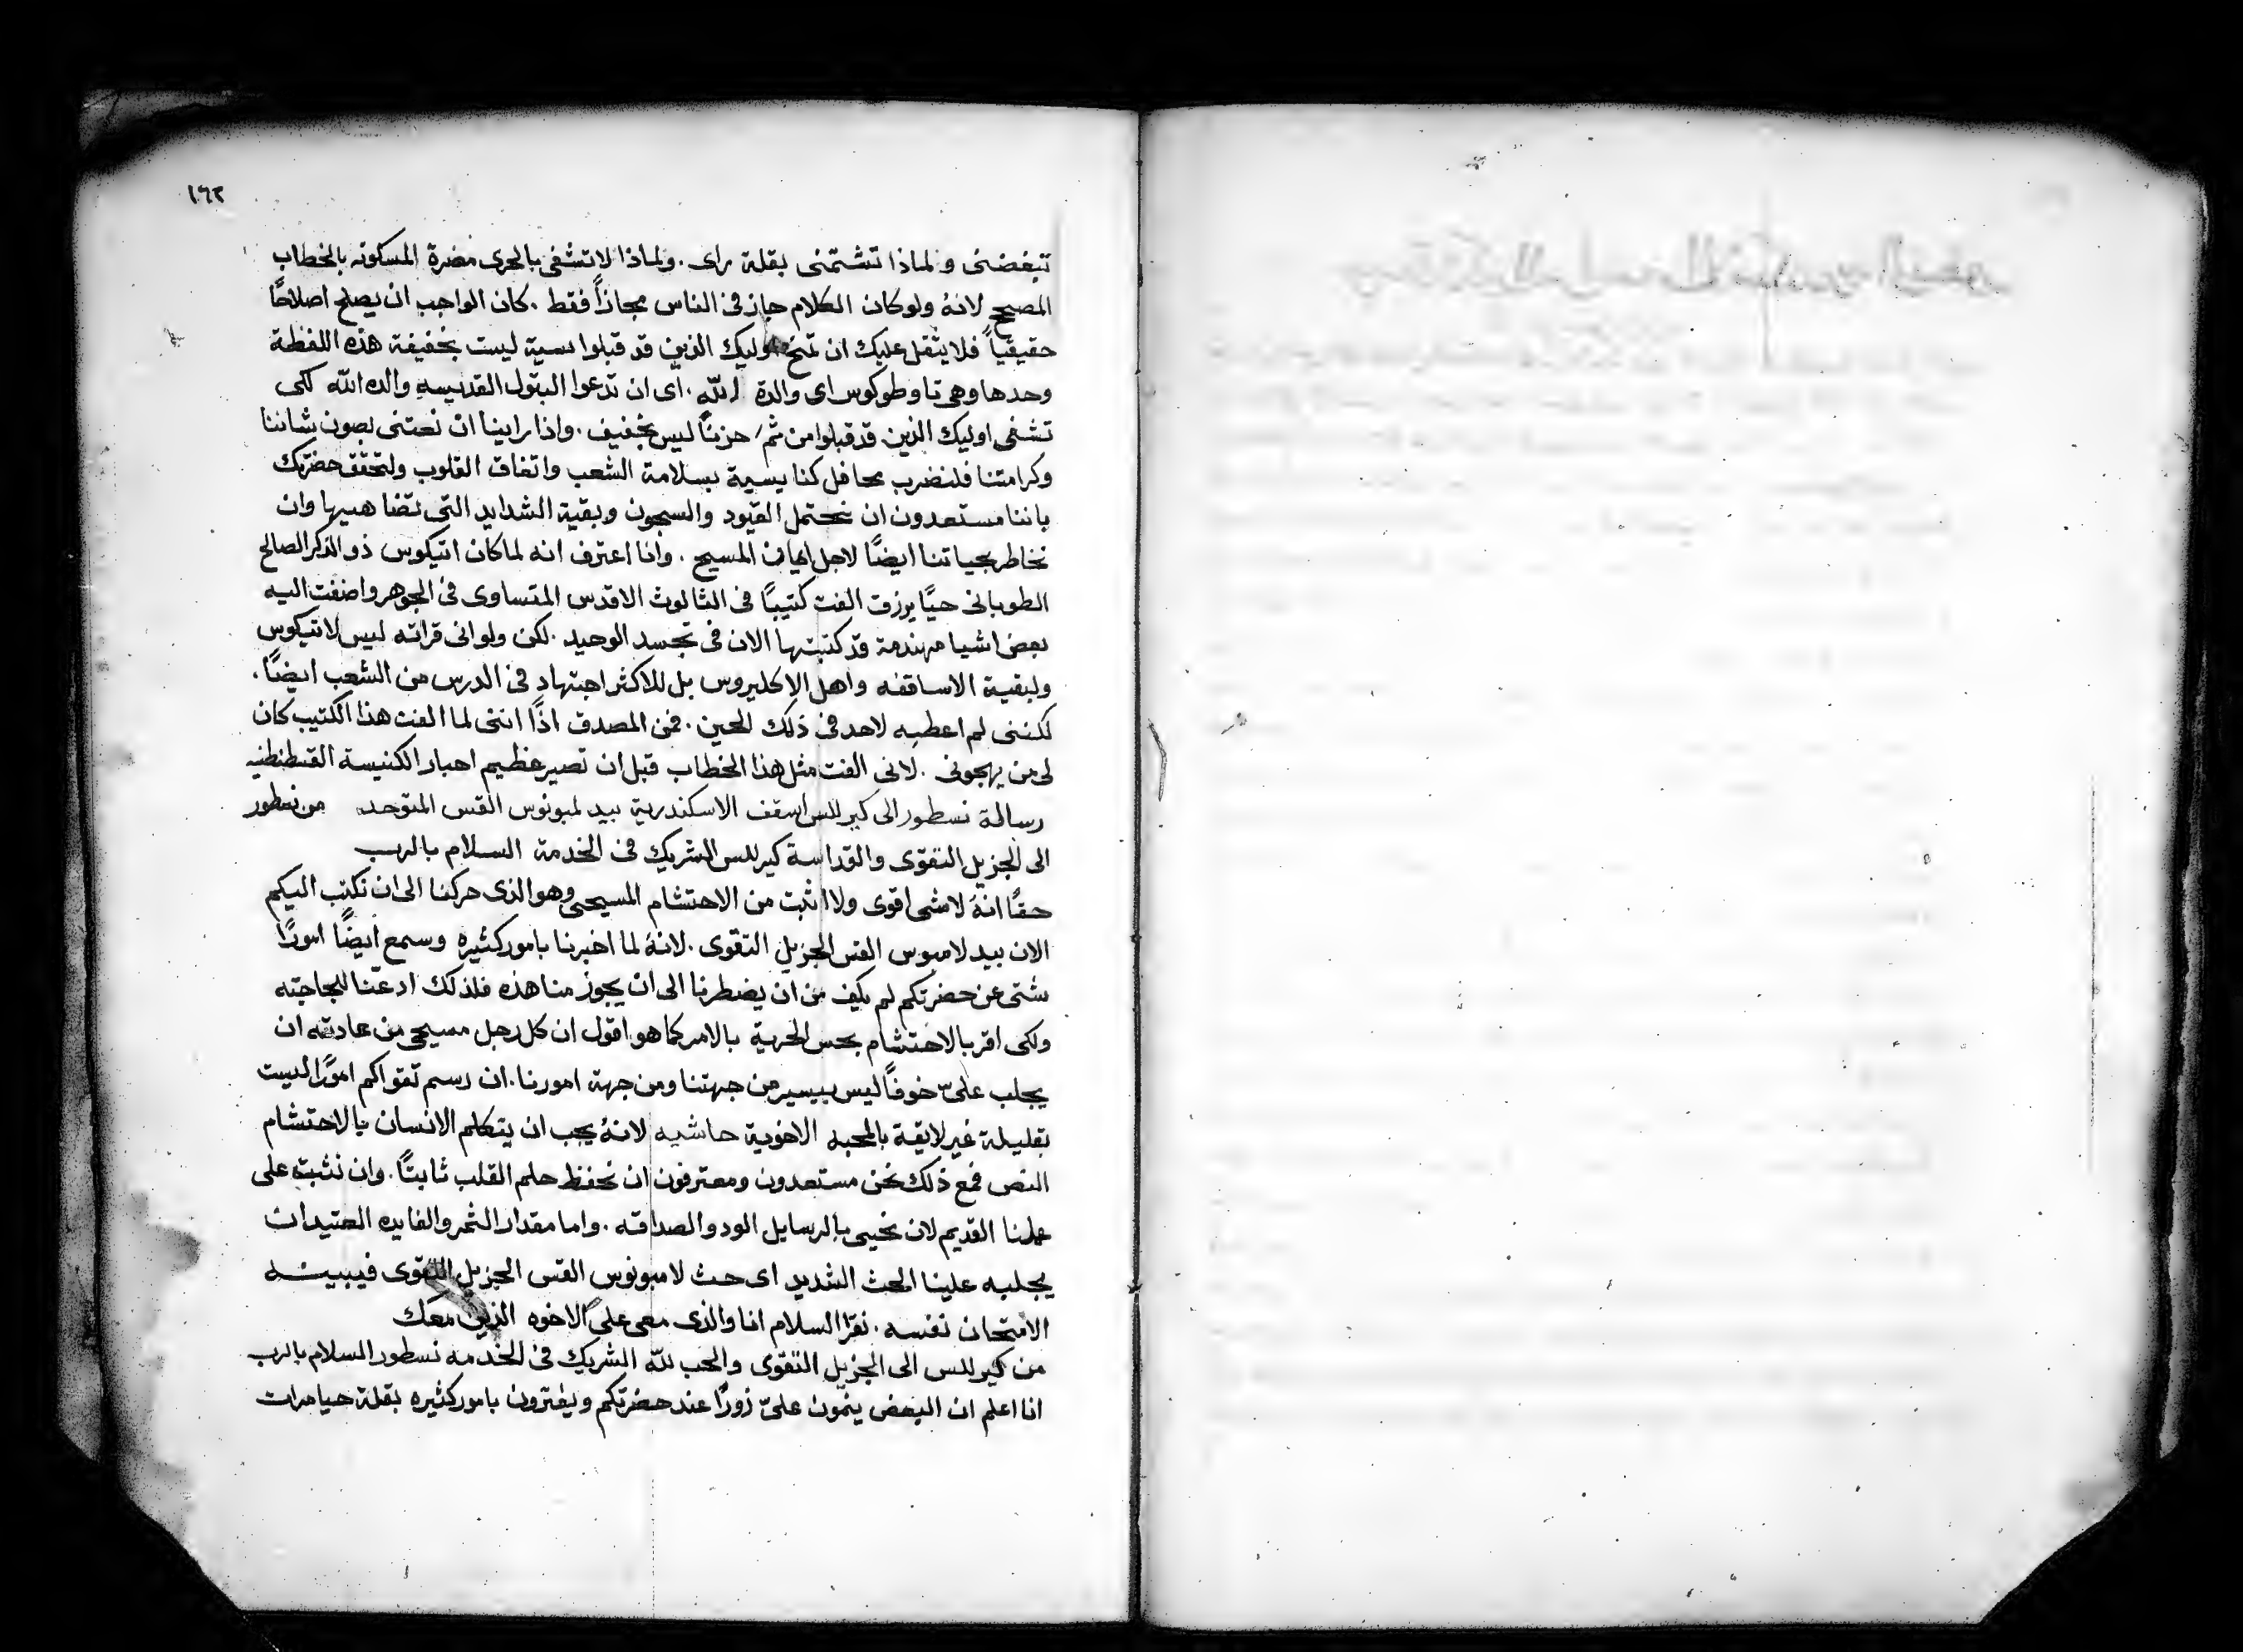 ١٦٢
تبغضنى ولماذا تشتمنى بقلة راى . ولماذا لا تشفى بالحرى مضرة المسكونه بالخطاب
المصحح لانهُ ولو كان الكلام جاز فى الناس مجازاً فقط . كان الواجب ان يصلح اصلاحًا
حقيقياً فلا يثقل عليك ان تمنح اوليك الذين قد قبلوا سية ليست بخفيفة هذه اللفظة
وحدها وهى تاوطوكوس اى والدة الله . اى ان تدعوا البتول القديسه والده الله لكى
تشفى اوليك الذين قد قبلوا من ثم حزنًا ليس بخفيف . واذا راينا ان نعتنى بصون شاننا
وكرامتنا فلنضرب محافل كنايسية بسلامة الشعب واتفاق القلوب ولتحقق حضرتك
باننا مستعدون ان نحتمل القيود والسجون وبقية الشدايد التى تضاهيها وان
نخاطر بحياتنا ايضًا لاجل ايمان المسيح . وانا اعترف انه لما كان اتيكوس ذو الذكر الصالح
الطوبانى حيًا يرزق الفت كتيبًا فى الثالوث الاقدس المتساوى فى الجوهر واضفت اليه
بعض اشيا مهندمة قد كتبتها الان فى تجسد الوحيد . لكن ولو انى قراته ليس لاتيكوس
ولبقية الاساقفه واهل الاكليروس بل للاكثر اجتهاد فى الدرس من الشعب ايضًا .
لكننى لم اعطيه لاحد فى ذلك الحين . فمن المصدق اذًا اننى لما الفت هذا الكتيب كان
لى من يهجونى . لانى الفت مثل هذا الخطاب قبل ان تصير عظيم احبار الكنيسة القسطنطنيه
رسالة نسطور الى كيرللس اسقف الاسكندرية بيد لمبونوس القس المتوحد من نسطور
الى الجزيل التقوى والقداسة كيرللس الشريك فى الخدمة السلام بالرب
حقًا انهُ لا شى اقوى ولا اثبت من الاحتشام المسيحى وهو الذى حركنا الى ان نكتب اليكم
الان بيد لامبوس القس الجزيل التقوى . لانهُ لما اخبرنا بامور كثيره وسمع ايضًا امورًا
شتى عن حضرتكم لم يكف من ان يضطرنا الى ان يجوز منا هذه فلذلك ادعنا للجاجته
ولكى اقر بالاحتشام بحس الحرية بالامر كما هو اقول ان كل رجل مسيحى من عادته ان
يجلب علىّ خوفًا ليس بيسير من جهتنا ومن جهة امورنا . ان رسم تقواكم امورًا ليست
بقليلة غير لايقة بالمحبه الاخوية حاشيه لانهُ يجب ان يتكلم الانسان بالاحتشام
النص فمع ذلك نحن مستعدون ومعترفون ان نحفظ حلم القلب ثابتًا . وان نثبت على
عملنا القديم لان نحيى بالرسايل الود والصداقه . واما مقدار الثمر والفايده العتيد ان
يجلبه علينا الحث الشديد اى حث لامبونوس القس الجزيل التقوى فيبينه
الامتحان نفسه . نقرا السلام انا والذى معى على الاخوه الذين معك
من كيرللس الى الجزيل التقوى والحب لله الشريك فى الخدمه نسطور السلام بالرب
انا اعلم ان البعض ينمّون علىّ زورًا عند حضرتكم ويفترون بامور كثيره بقلة حيا مرات